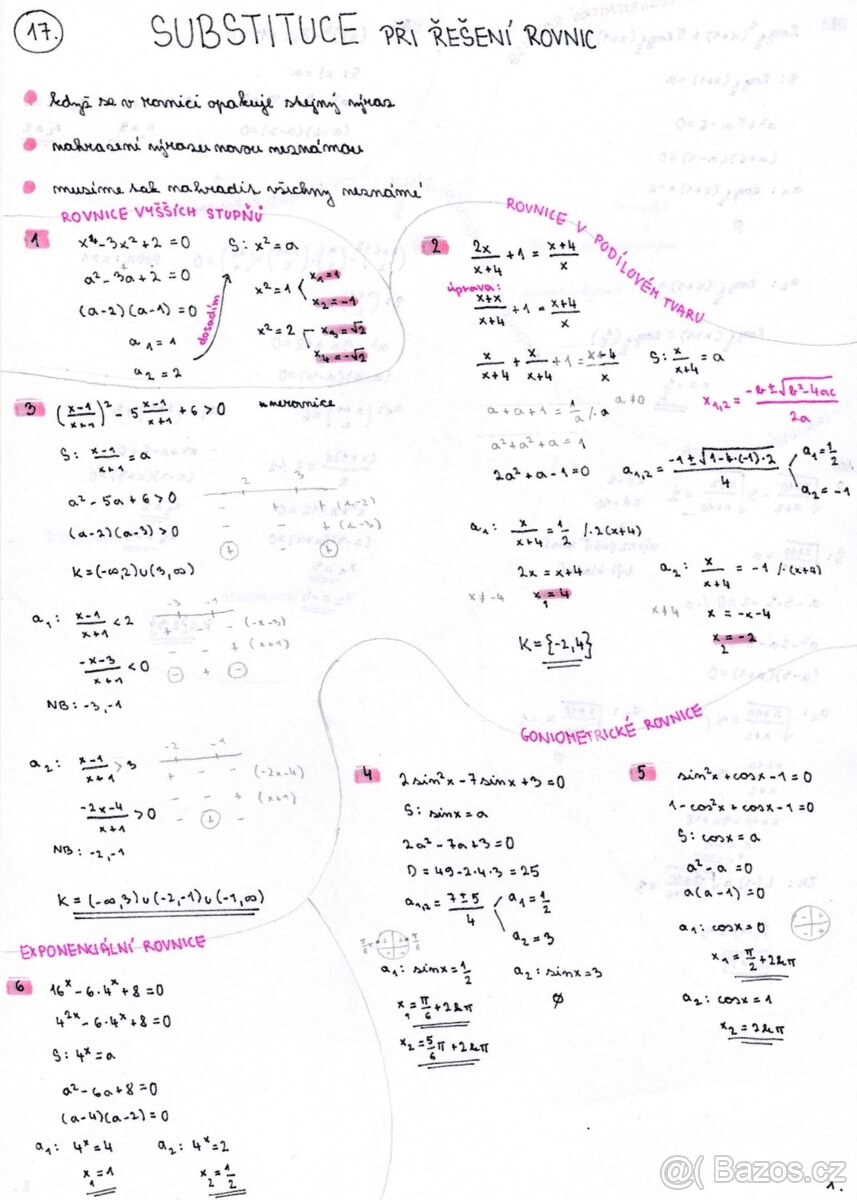 17.
SUBSTITUCE PŘI ŘEŠENÍ ROVNIC
když se v rovnici opakuje stejný výraz
nahrazení výrazu novou neznámou
musíme tak nahradit všechny neznámé
ROVNICE VYŠŠÍCH STUPŇŮ
1
x⁴-3x²+2=0
S: x²=a
a²-3a+2=0
(a-2)(a-1)=0
a₁=1
a₂=2
dosadím
x²=1
x₁=1
x₂=-1
x²=2
x₃=√2
x₄=-√2
ROVNICE V PODÍLOVÉM TVARU
2
2x/(x+4) + 1 = (x+4)/x
úprava:
(x+x)/(x+4) + 1 = (x+4)/x
x/(x+4) + x/(x+4) + 1 = (x+4)/x
S: x/(x+4) = a
a+a+1 = 1/a /·a
a≠0
x₁,₂ = (-b±√(b²-4ac))/2a
a²+a²+a=1
2a²+a-1=0
a₁,₂ = (-1±√(1-4·(-1)·2))/4
a₁=1/2
a₂=-1
a₁: x/(x+4) = 1/2 /·2(x+4)
2x=x+4
x≠-4
x₁=4
a₂: x/(x+4) = -1 /·(x+4)
x≠4
x=-x-4
x₂=-2
K={-2,4}
3
((x-1)/(x+1))² - 5 (x-1)/(x+1) + 6 > 0
nerovnice
S: (x-1)/(x+1) = a
a²-5a+6>0
(a-2)(a-3)>0
2 3
- + + (a-2)
- - + (a-3)
+ - +
K=(-∞,2)∪(3,∞)
a₁: (x-1)/(x+1) < 2
(-x-3)/(x+1) < 0
NB: -3,-1
-3 -1
+ - - (-x-3)
- - + (x+1)
- + -
a₂: (x-1)/(x+1) > 3
(-2x-4)/(x+1) > 0
NB: -2,-1
-2 -1
+ - - (-2x-4)
- - + (x+1)
- + -
K=(-∞,3)∪(-2,-1)∪(-1,∞)
GONIOMETRICKÉ ROVNICE
4
2sin²x-7sinx+3=0
S: sinx=a
2a²-7a+3=0
D=49-2·4·3=25
a₁,₂ = (7±5)/4
a₁=1/2
a₂=3
a₁: sinx=1/2
x₁=π/6+2kπ
x₂=5/6π+2kπ
a₂: sinx=3
∅
5
sin²x+cosx-1=0
1-cos²x+cosx-1=0
S: cosx=a
a²-a=0
a(a-1)=0
a₁: cosx=0
x₁=π/2+2kπ
a₂: cosx=1
x₂=2kπ
EXPONENCIÁLNÍ ROVNICE
6
16ˣ-6·4ˣ+8=0
4²ˣ-6·4ˣ+8=0
S: 4ˣ=a
a²-6a+8=0
(a-4)(a-2)=0
a₁: 4ˣ=4
x₁=1
a₂: 4ˣ=2
x₂=1/2
1.
@( Bazos.cz